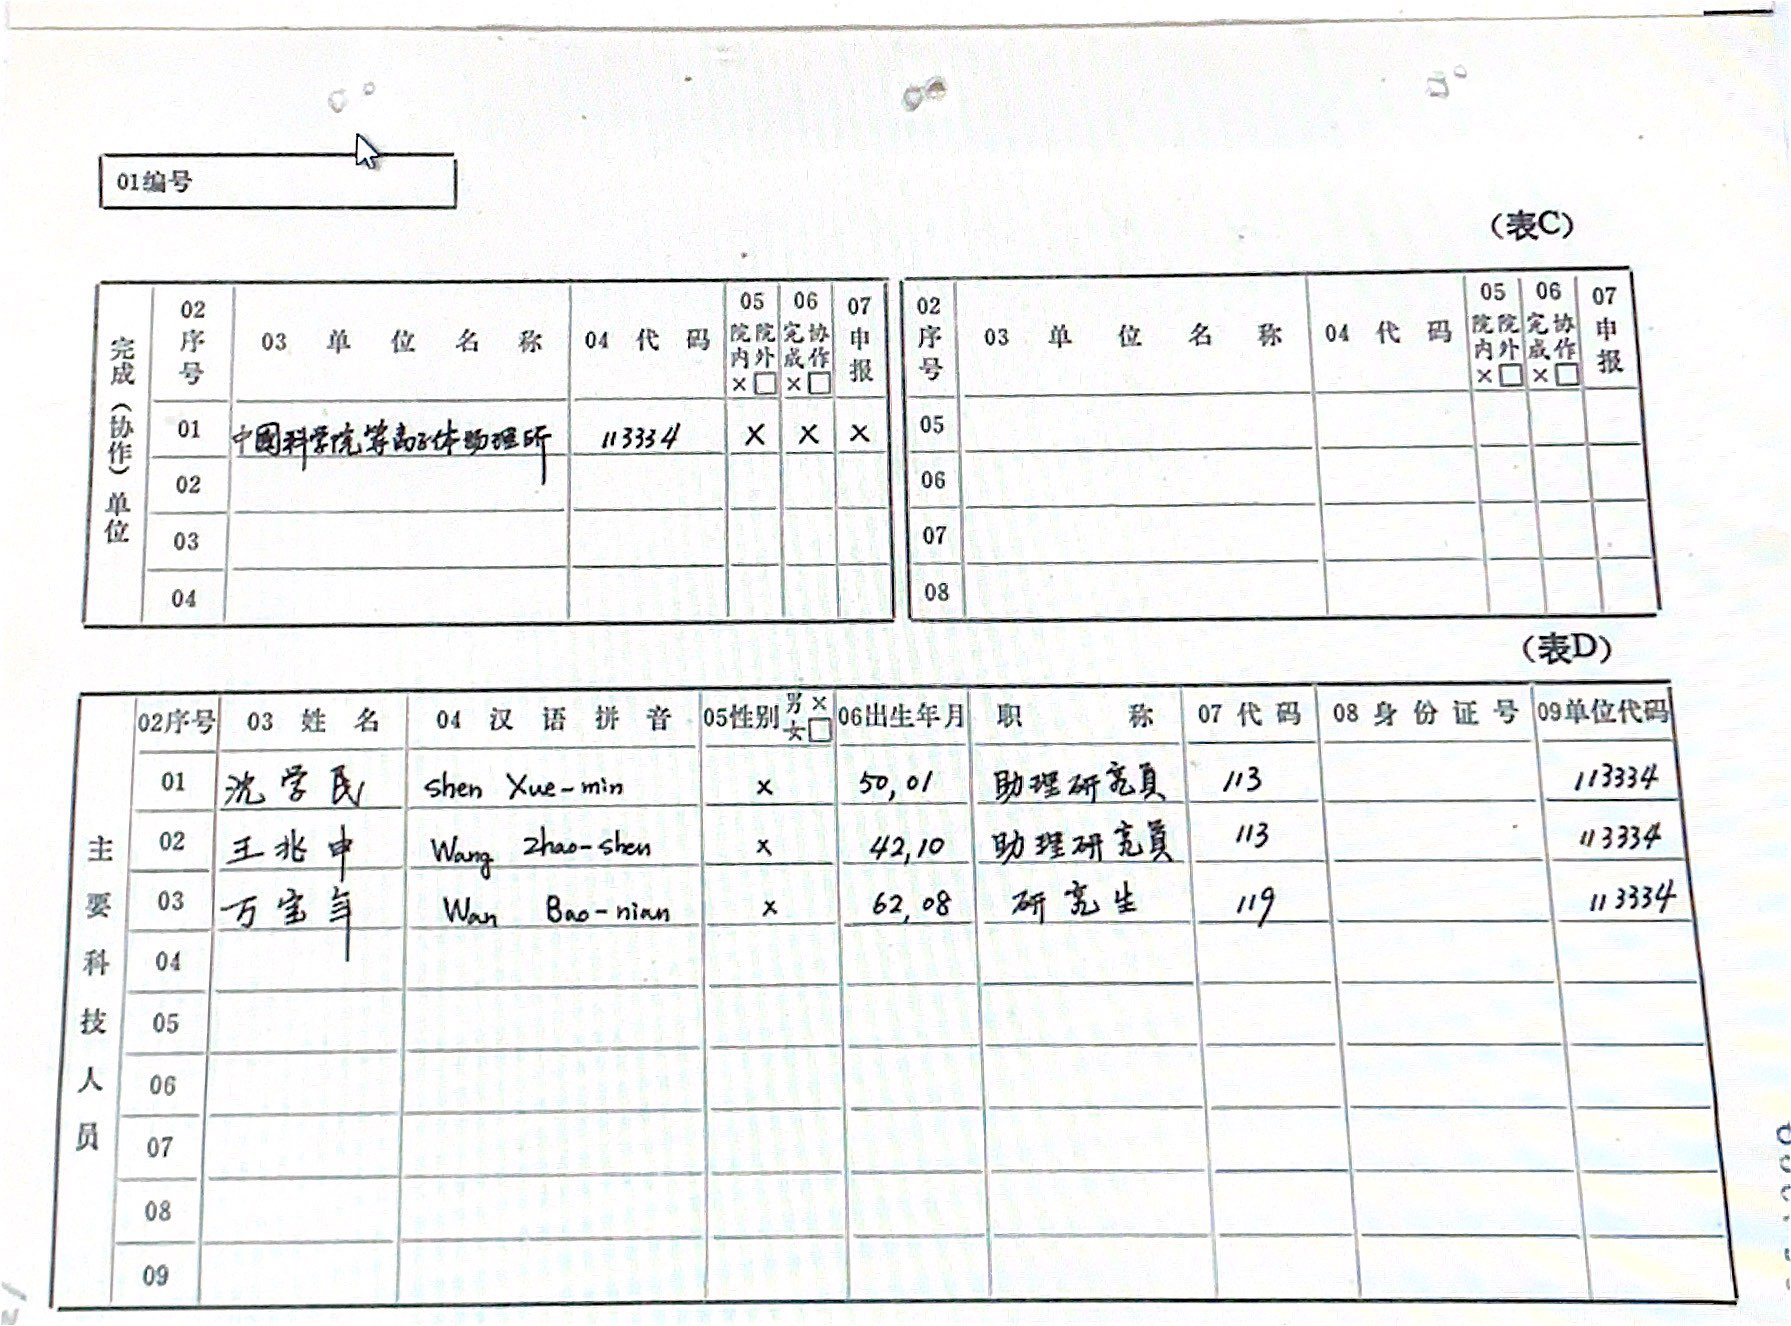 01编号
(表C)
完成(协作)单位
02序号 03 单位名称 04 代码 05 院内 院外 ×□ 06 完成 协作 ×□ 07 申报 02序号 03 单位名称 04 代码 05 院内 院外 ×□ 06 完成 协作 ×□ 07 申报
01 中國科学院等离子体物理所 113334 × × × 05
02 06
03 07
04 08
(表D)
主要科技人员
02序号 03 姓名 04 汉语拼音 05性别 男× 女□ 06出生年月 职称 07 代码 08 身份证号 09单位代码
01 沈学民 Shen Xue-min × 50,01 助理研究員 113 113334
02 王兆申 Wang Zhao-shen × 42,10 助理研究員 113 113334
03 万宝年 Wan Bao-nian × 62,08 研究生 119 113334
04
05
06
07
08
09